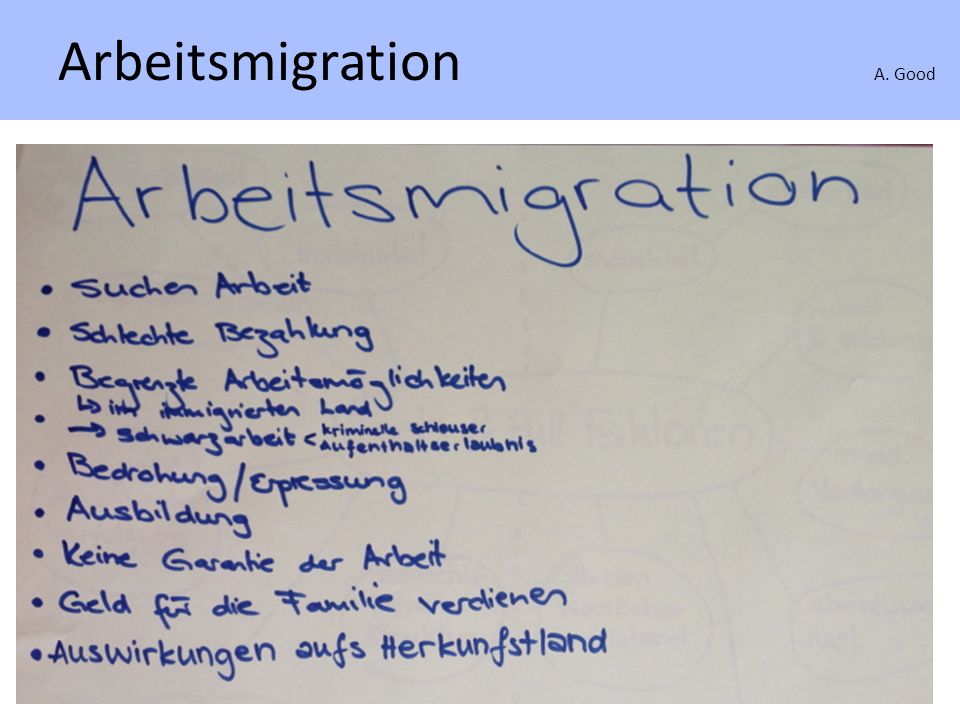 Arbeitsmigration
A. Good
Arbeitsmigration
• Suchen Arbeit
• Schlechte Bezahlung
• Begrenzte Arbeitsmöglichkeiten
↳ im immigrierten Land
• → Schwarzarbeit < kriminelle Schleuser
Aufenthaltserlaubnis
• Bedrohung/Erpressung
• Ausbildung
• Keine Garantie der Arbeit
• Geld für die Familie verdienen
• Auswirkungen aufs Herkunfstland
Faktoren